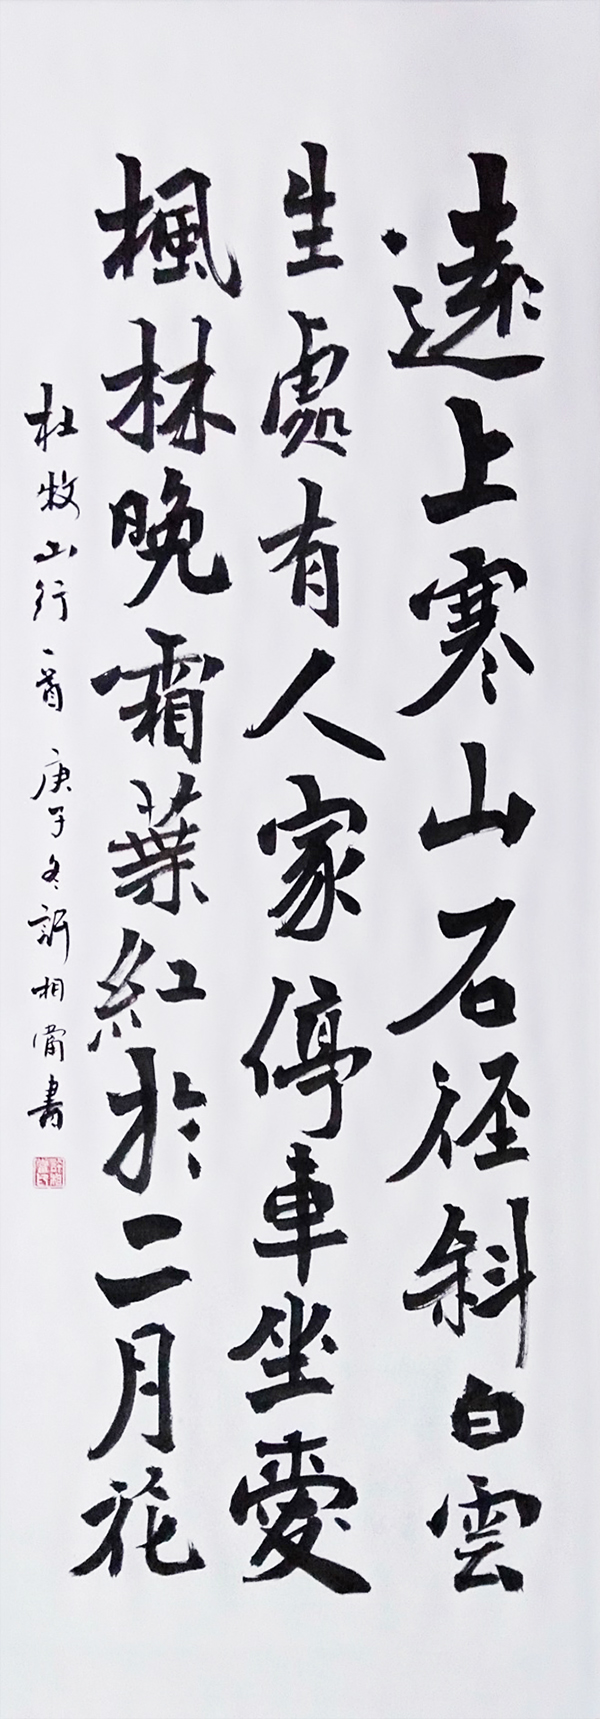 遠上寒山石徑斜白雲
生處有人家停車坐愛
楓林晚霜葉紅於二月花
杜牧山行一首 庚子冬 許相甯書